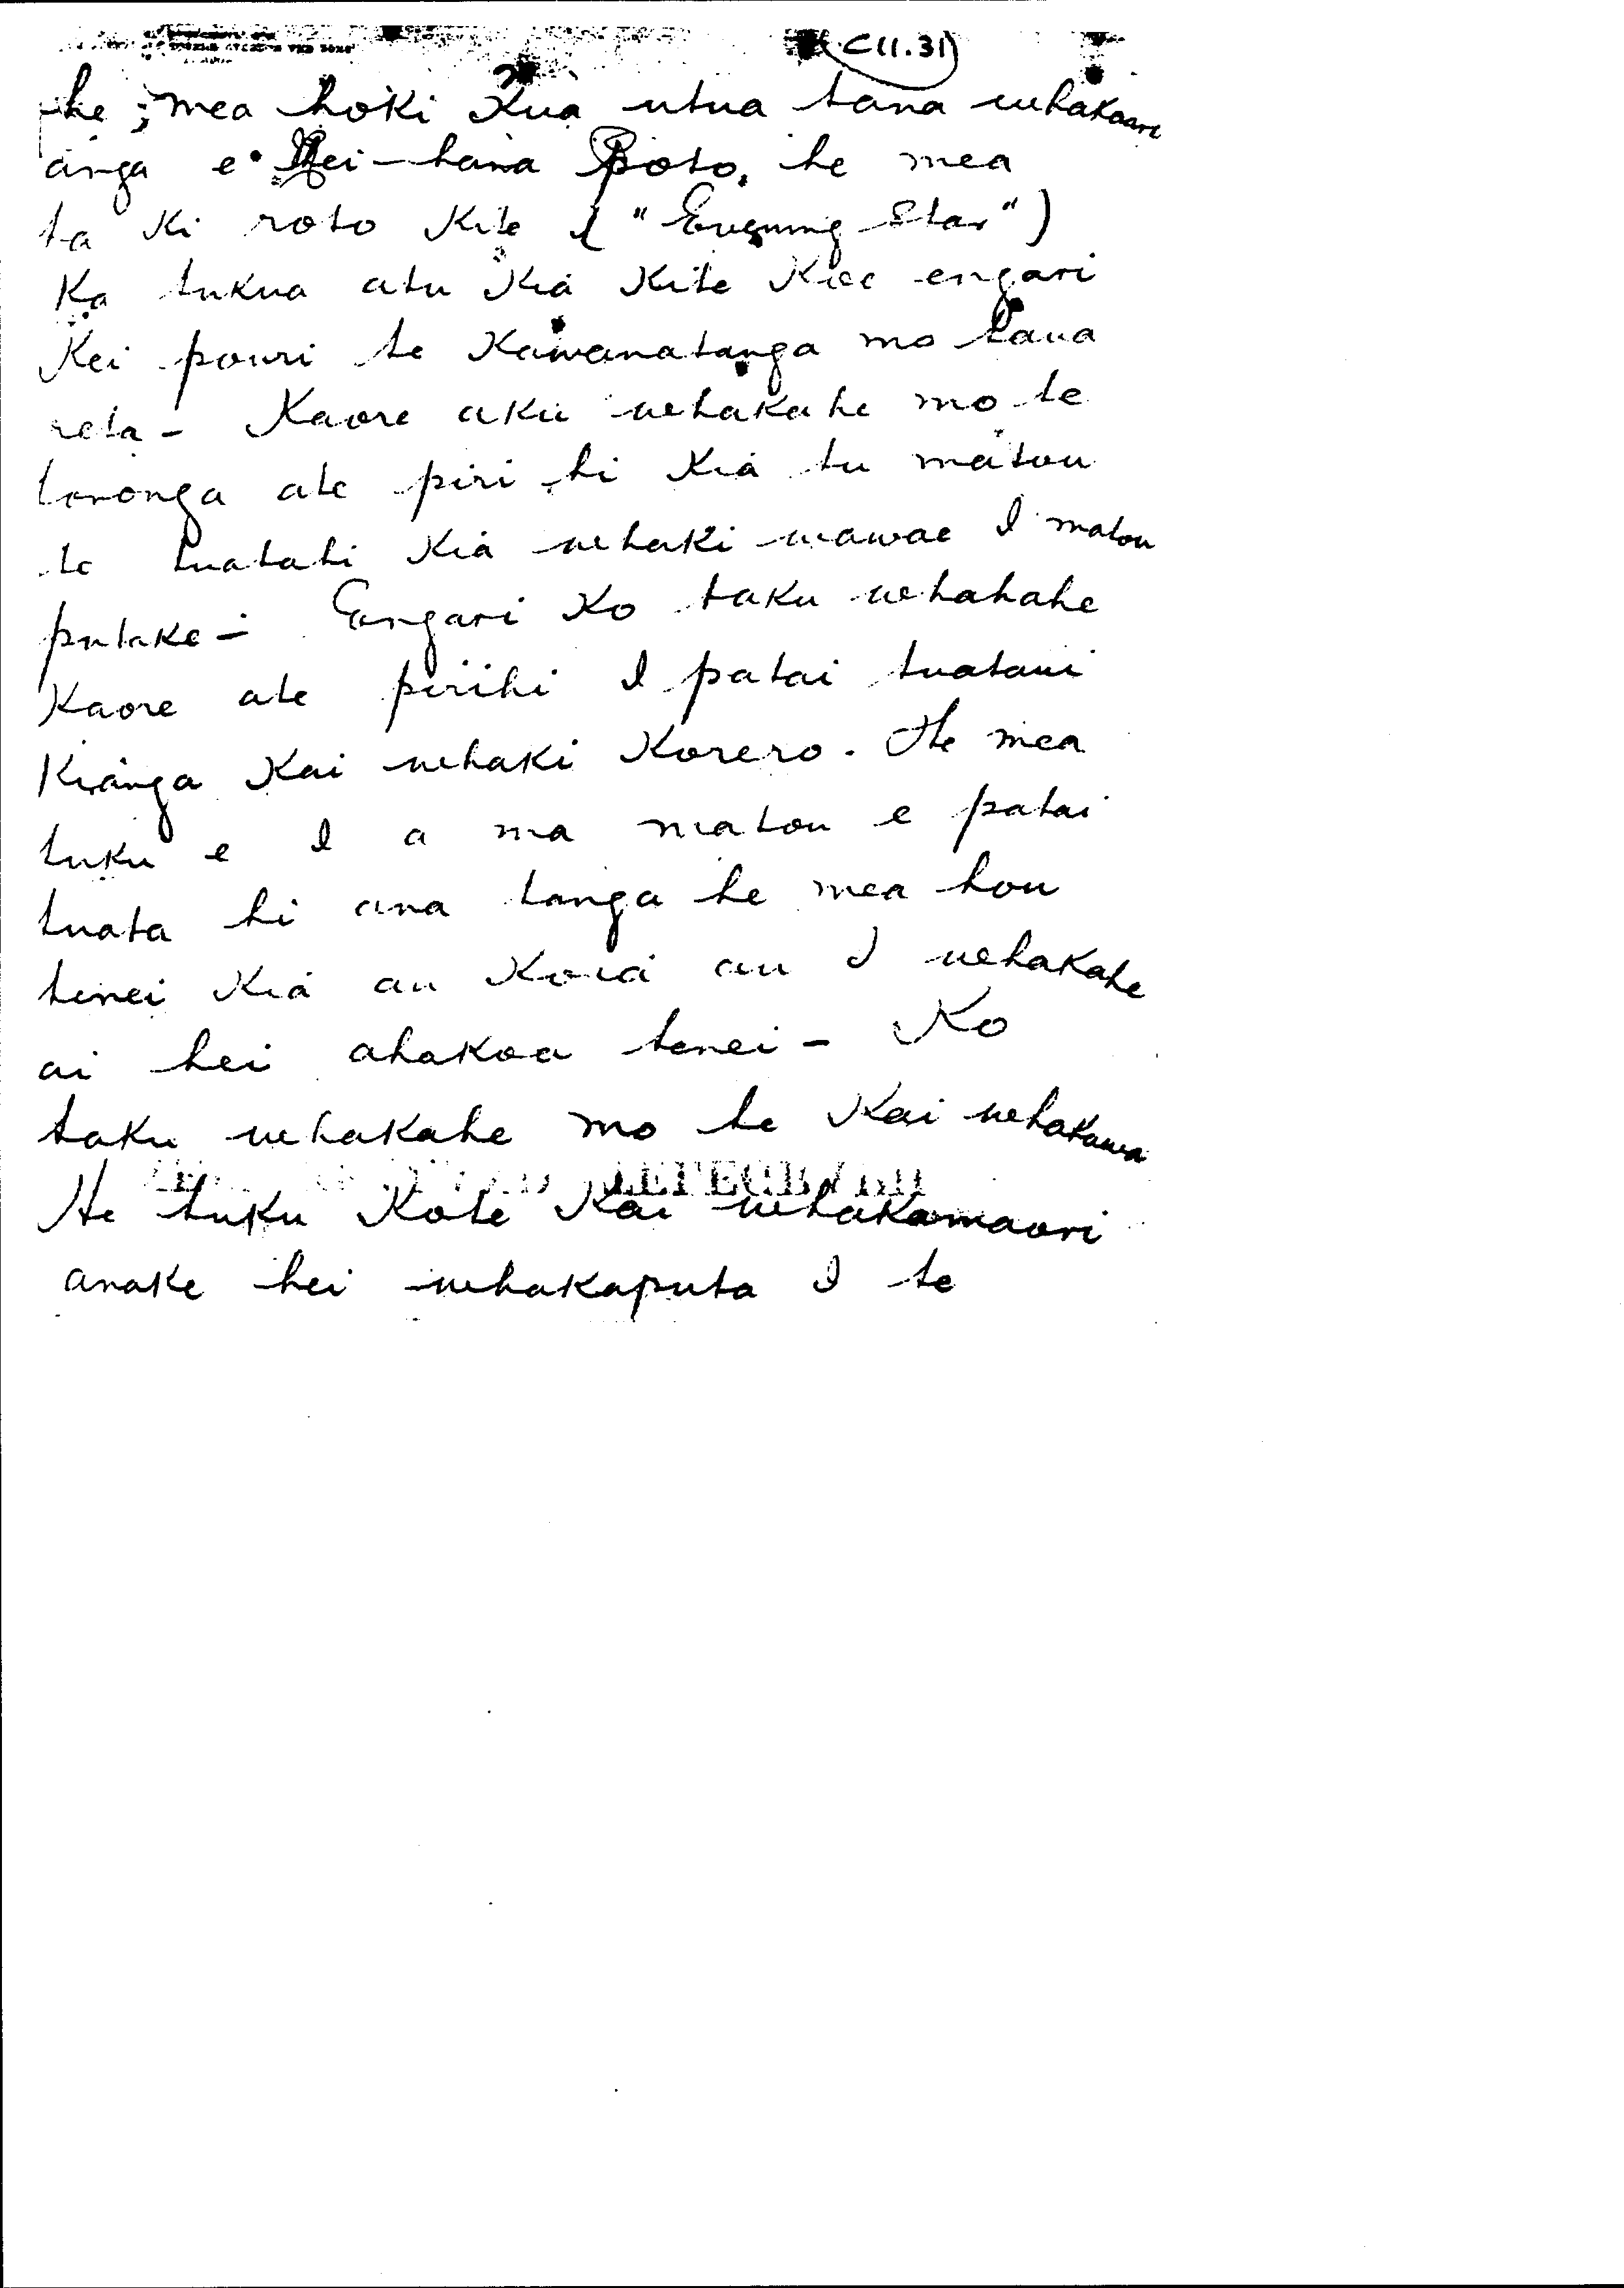 (C11.31)
he; mea hoki Kua utua tana whakaari
anga e Hei-hana Poto, he mea
ta Ki roto Kite ("Evening Star")
Ka tukua atu Kia Kite Koe engari
Kei pouri te Kawanatanga mo taua
reta - Kaore aku whakahe mo te
tononga ate piri hi Kia tu matou
te tuatahi Kia whaki wawae I matou
putake - Engari Ko taku whahahe
Kaore ate pirihi I patai tuatahi
Kianga Kai whaki Korero. He mea
tuku e I a ma matou e patai
tuata hi ana tanga he mea hou
tenei Kia au Koia au I whakahe
ai hei ahakoa tenei - Ko
taku whakahe mo te Kai whakawa
He tuku Kote Kai whakamaori
anake hei whakaputa I te